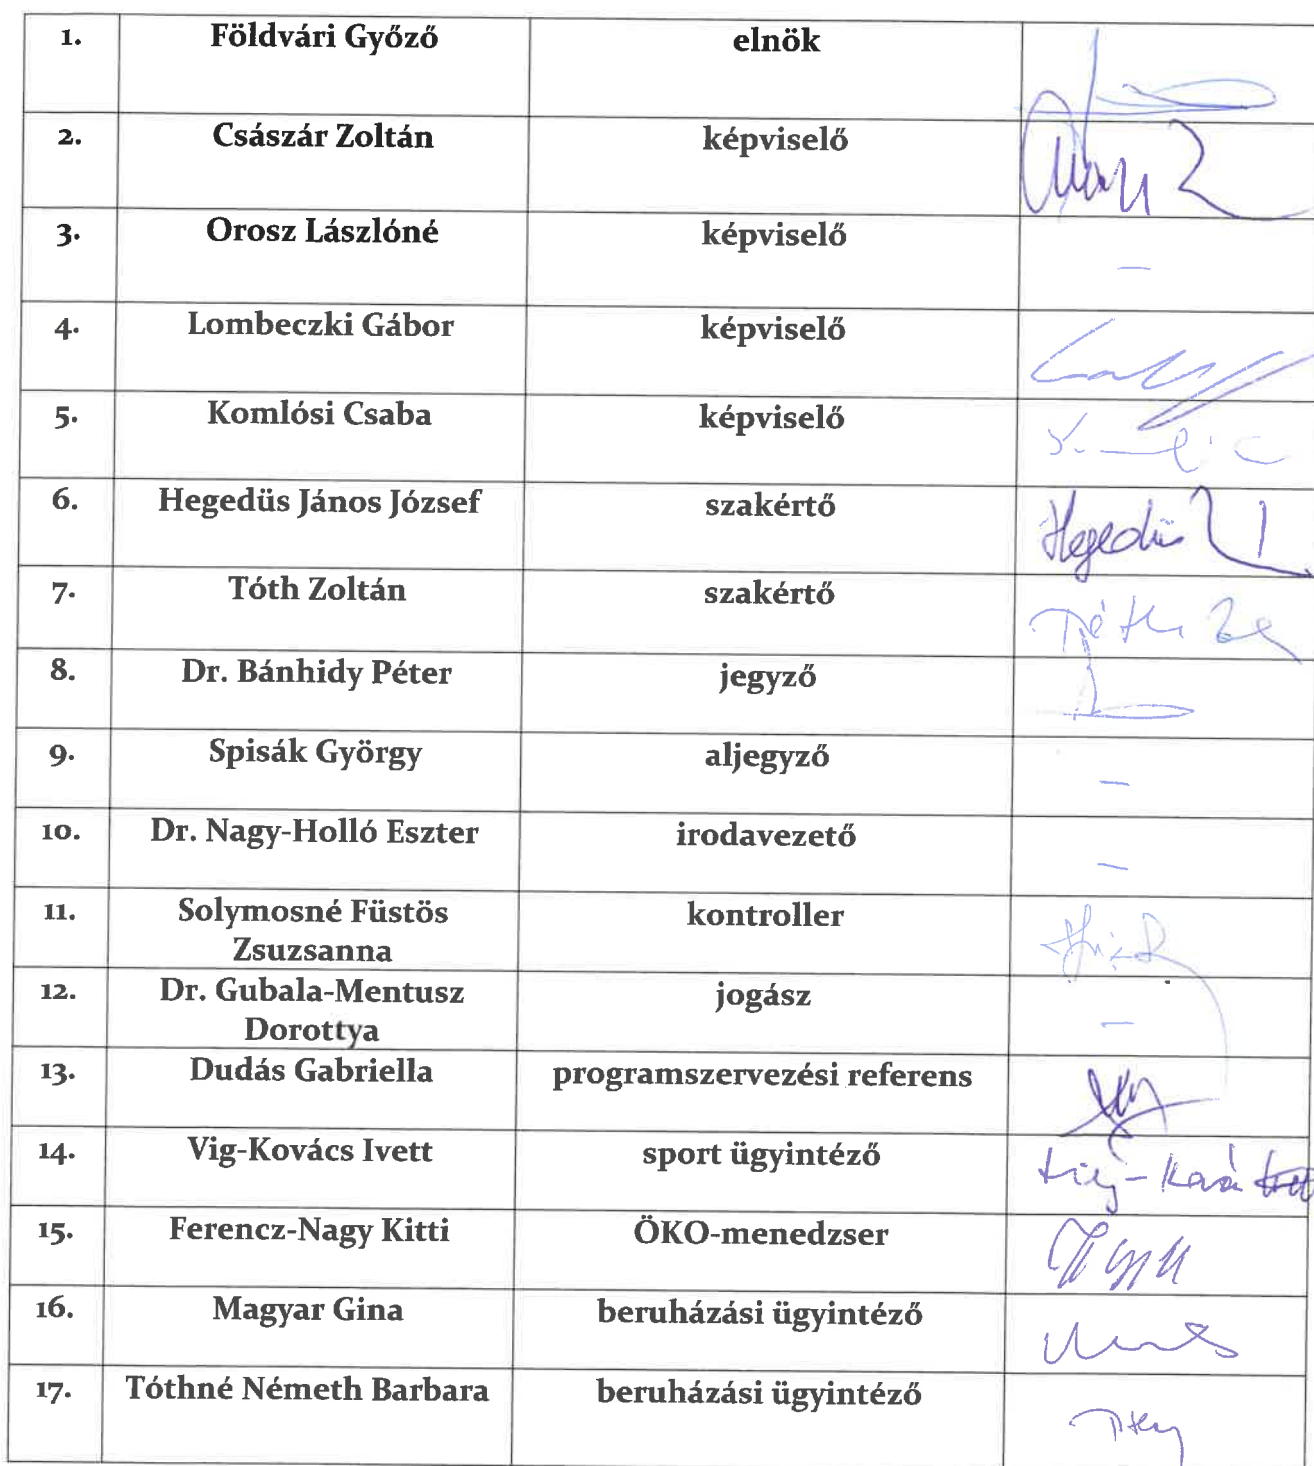 1. Földvári Győző elnök
2. Császár Zoltán képviselő
3. Orosz Lászlóné képviselő –
4. Lombeczki Gábor képviselő
5. Komlósi Csaba képviselő
6. Hegedüs János József szakértő Hegedüs
7. Tóth Zoltán szakértő Tóth
8. Dr. Bánhidy Péter jegyző
9. Spisák György aljegyző –
10. Dr. Nagy-Holló Eszter irodavezető –
11. Solymosné Füstös kontroller
Zsuzsanna
12. Dr. Gubala-Mentusz jogász –
Dorottya
13. Dudás Gabriella programszervezési referens
14. Vig-Kovács Ivett sport ügyintéző
15. Ferencz-Nagy Kitti ÖKO-menedzser
16. Magyar Gina beruházási ügyintéző
17. Tóthné Németh Barbara beruházási ügyintéző